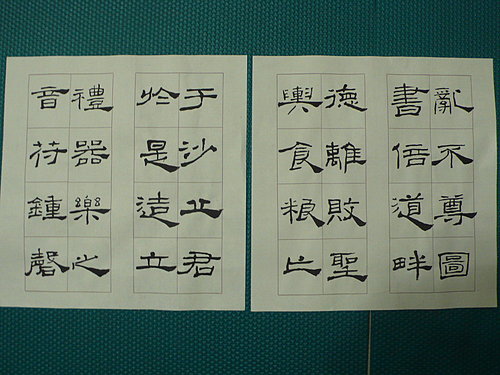 亂不尊圖
書倍道畔
德離敗聖
輿食粮亡
于沙丘君
於是造立
禮器樂之
音苻鍾磬